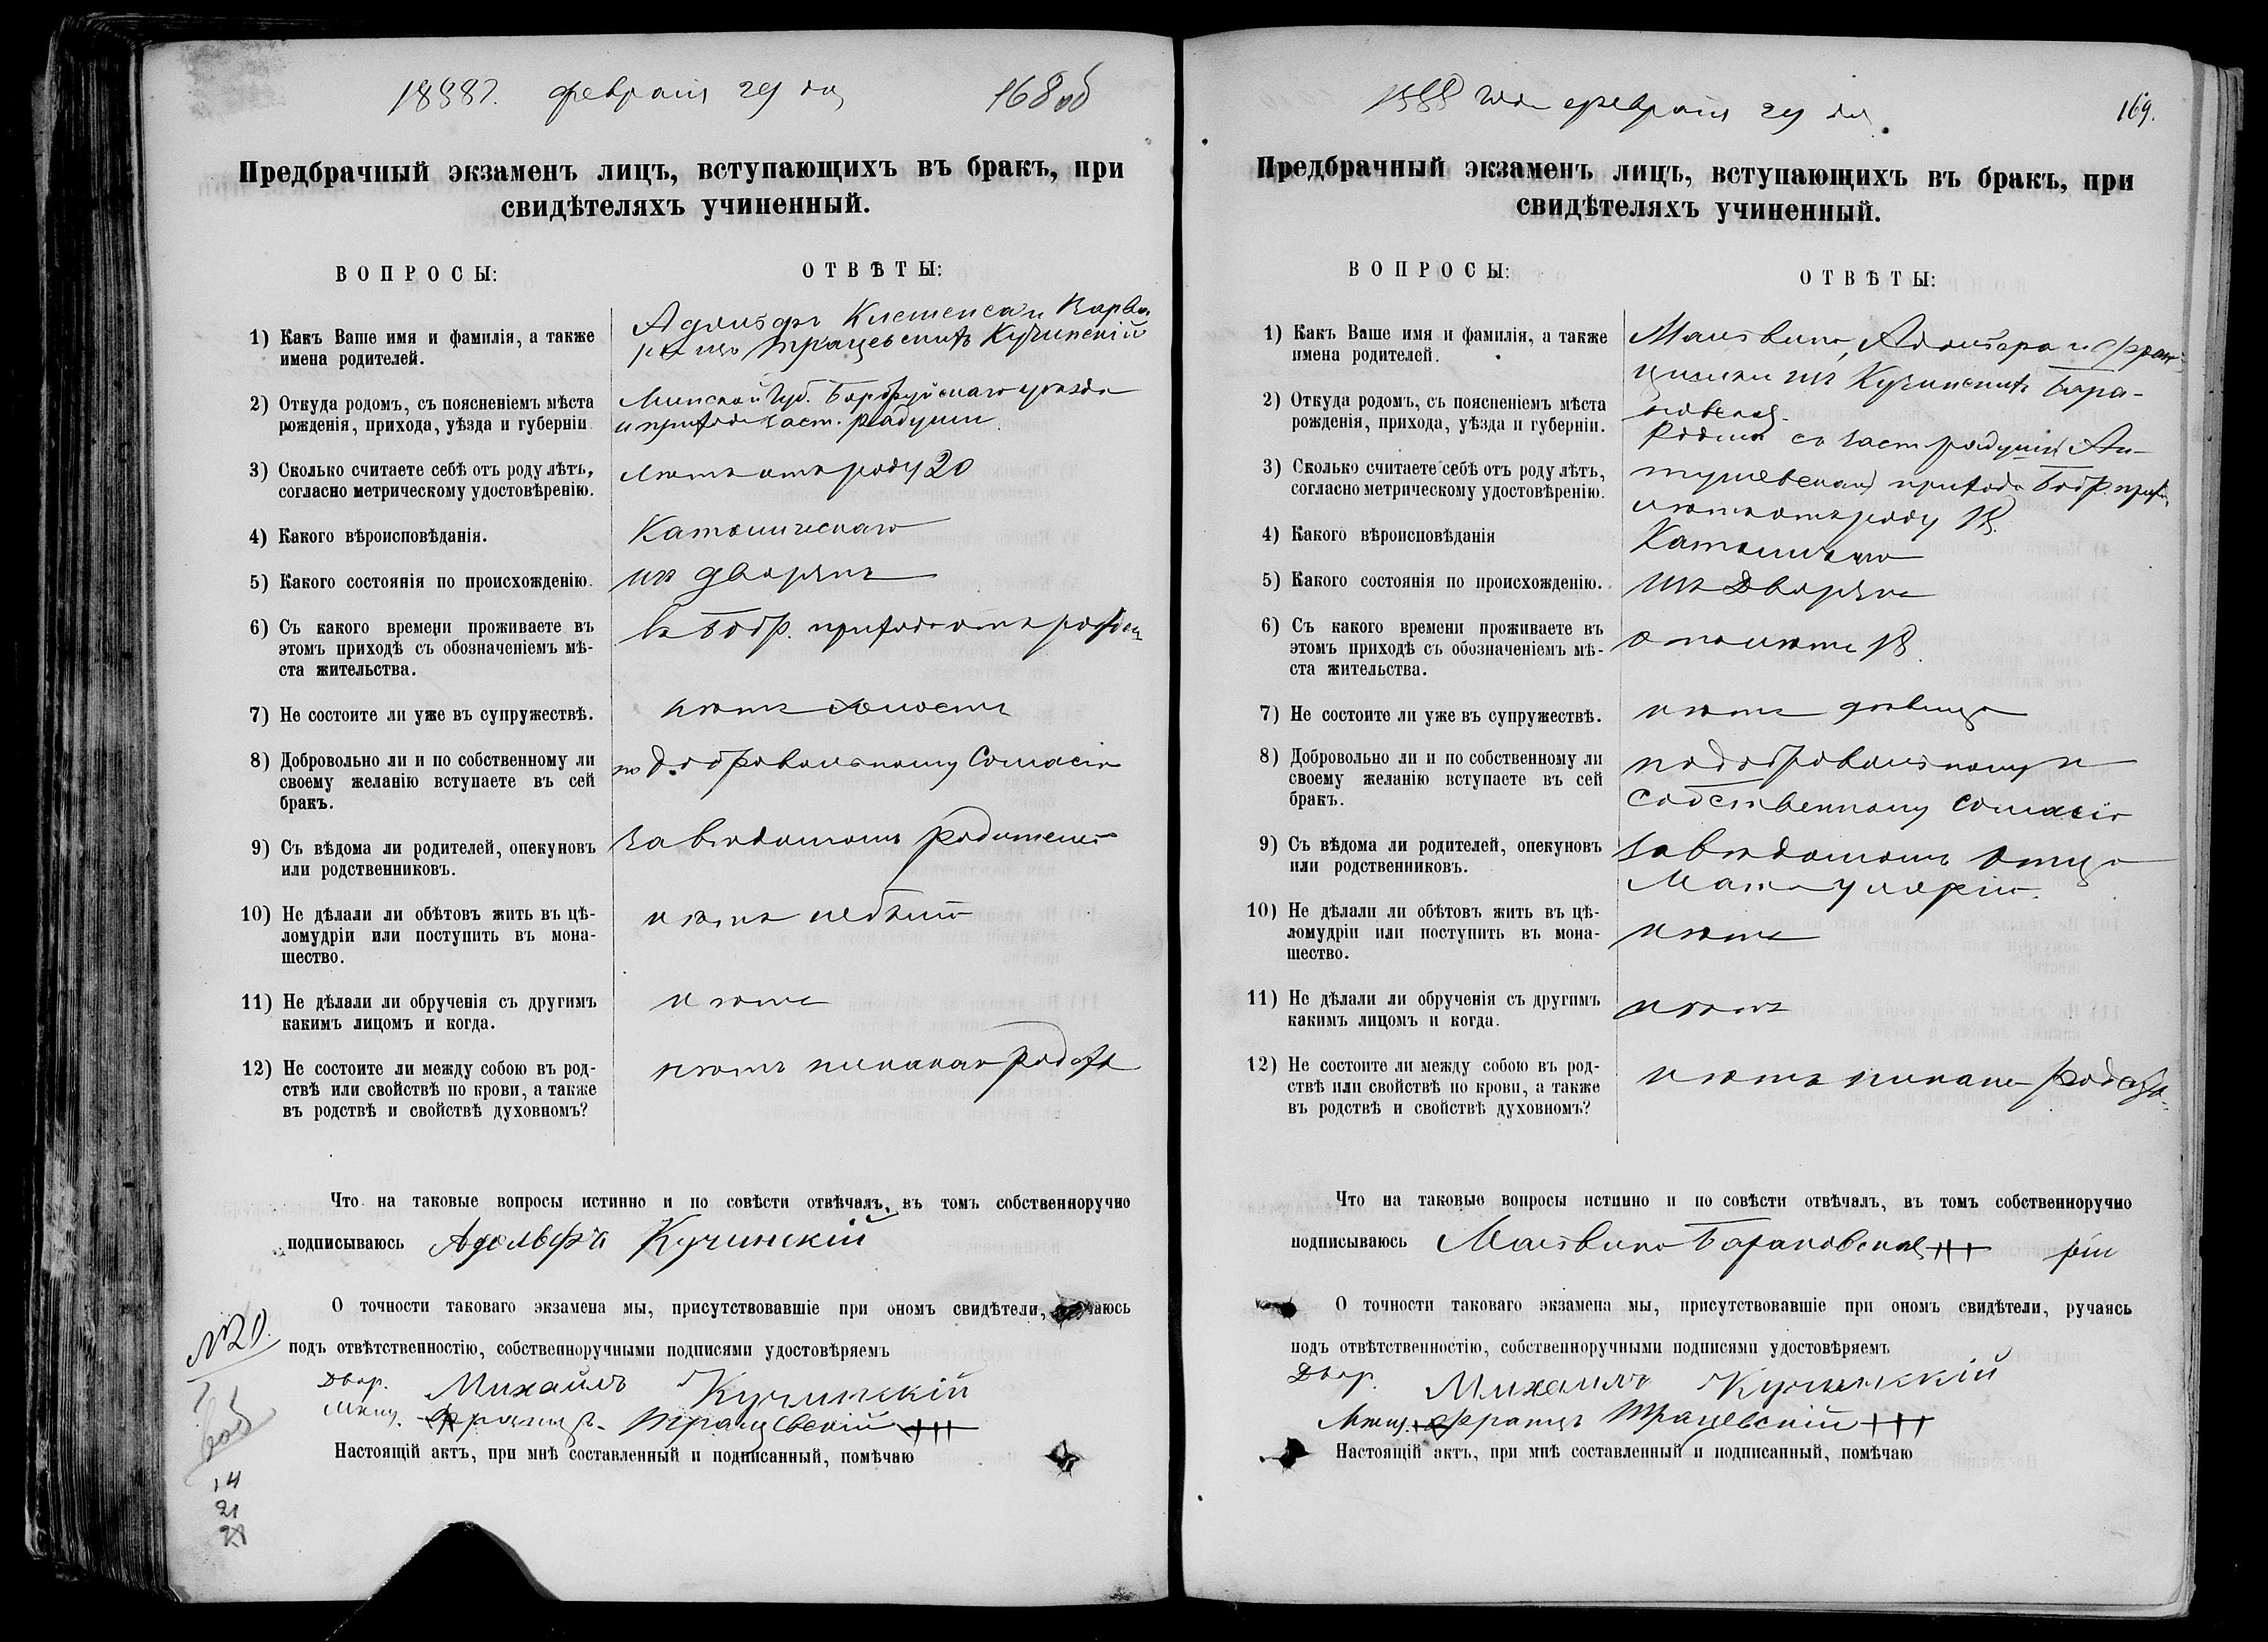 1888 г. февраля 29 дня
168 об
Предбрачный экзаменъ лицъ, вступающихъ въ бракъ, при
свидѣтеляхъ учиненный.
ВОПРОСЫ:
ОТВѢТЫ:
1) Какъ Ваше имя и фамилія, а также
имена родителей.
Адольфъ
Трацевскихъ Кучинскій
2) Откуда родомъ, съ поясненіемъ мѣста
рожденія, прихода, уѣзда и губерніи
Минской Губ. Бобруйскаго уѣзда
и прихода заст. Радуши
3) Сколько считаете себѣ отъ роду лѣтъ,
согласно метрическому удостовѣренію.
лѣтъ отъ роду 20
4) Какого вѣроисповѣданія.
Католическаго
5) Какого состоянія по происхожденію.
изъ дворянъ
6) Съ какого времени проживаете въ
этомъ приходѣ съ обозначеніемъ мѣ-
ста жительства.
въ Бобр. приходѣ отъ рожден
7) Не состоите ли уже въ супружествѣ.
нѣтъ холостъ
8) Добровольно ли и по собственному ли
своему желанію вступаете въ сей
бракъ.
по добровольному согласію
9) Съ вѣдома ли родителей, опекуновъ
или родственниковъ.
за вѣдомомъ родителей
10) Не дѣлали ли обѣтовъ жить въ цѣ-
ломудріи или поступить въ мона-
шество.
нѣтъ не было
11) Не дѣлали ли обрученія съ другимъ
какимъ лицомъ и когда.
нѣтъ
12) Не состоите ли между собою въ род-
ствѣ или свойствѣ по крови, а также
въ родствѣ и свойствѣ духовномъ?
нѣтъ никакаго родства
Что на таковые вопросы истинно и по совѣсти отвѣчалъ, въ томъ собственноручно
подписываюсь Адольфъ Кучинскій
О точности таковаго экзамена мы, присутствовавшіе при ономъ свидѣтели,
подъ отвѣтственностію, собственноручными подписями удостовѣряемъ
Двор. Михаилъ Кучинскій
Мѣщ. Францъ Трацевскій +++
Настоящій актъ, при мнѣ составленный и подписанный, помѣчаю
14
21
28
1888 года февраля 29 дня.
169.
Предбрачный экзаменъ лицъ, вступающихъ въ бракъ, при
свидѣтеляхъ учиненный.
ВОПРОСЫ:
ОТВѢТЫ:
1) Какъ Ваше имя и фамилія, а также
имена родителей.
Мальвина, Адольфа и Фран-
цишки изъ Кучинскихъ Бара-
новская
2) Откуда родомъ, съ поясненіемъ мѣста
рожденія, прихода, уѣзда и губерніи.
Родила съ заст Радуши
прихода Бобр.
3) Сколько считаете себѣ отъ роду лѣтъ,
согласно метрическому удостовѣренію.
лѣтъ отъ роду 18
4) Какого вѣроисповѣданія
5) Какого состоянія по происхожденію.
изъ Дворянъ
6) Съ какого времени проживаете въ
этомъ приходѣ съ обозначеніемъ мѣ-
ста жительства.
18
7) Не состоите ли уже въ супружествѣ.
нѣтъ дѣвица
8) Добровольно ли и по собственному ли
своему желанію вступаете въ сей
бракъ.
по добровольному и
собственному согласію
9) Съ вѣдома ли родителей, опекуновъ
или родственниковъ.
за вѣдомомъ отца
10) Не дѣлали ли обѣтовъ жить въ цѣ-
ломудріи или поступить въ мона-
шество.
нѣтъ
11) Не дѣлали ли обрученія съ другимъ
какимъ лицомъ и когда.
нѣтъ
12) Не состоите ли между собою въ род-
ствѣ или свойствѣ по крови, а также
въ родствѣ и свойствѣ духовномъ?
нѣтъ родства
Что на таковые вопросы истинно и по совѣсти отвѣчалъ, въ томъ собственноручно
подписываюсь Мальвина Барановская +++
О точности таковаго экзамена мы, присутствовавшіе при ономъ свидѣтели, ручаясь
подъ отвѣтственностію, собственноручными подписями удостовѣряемъ
Двор. Михаилъ Кучинскій
Мѣщ. Францъ Трацевскій +++
Настоящій актъ, при мнѣ составленный и подписанный, помѣчаю